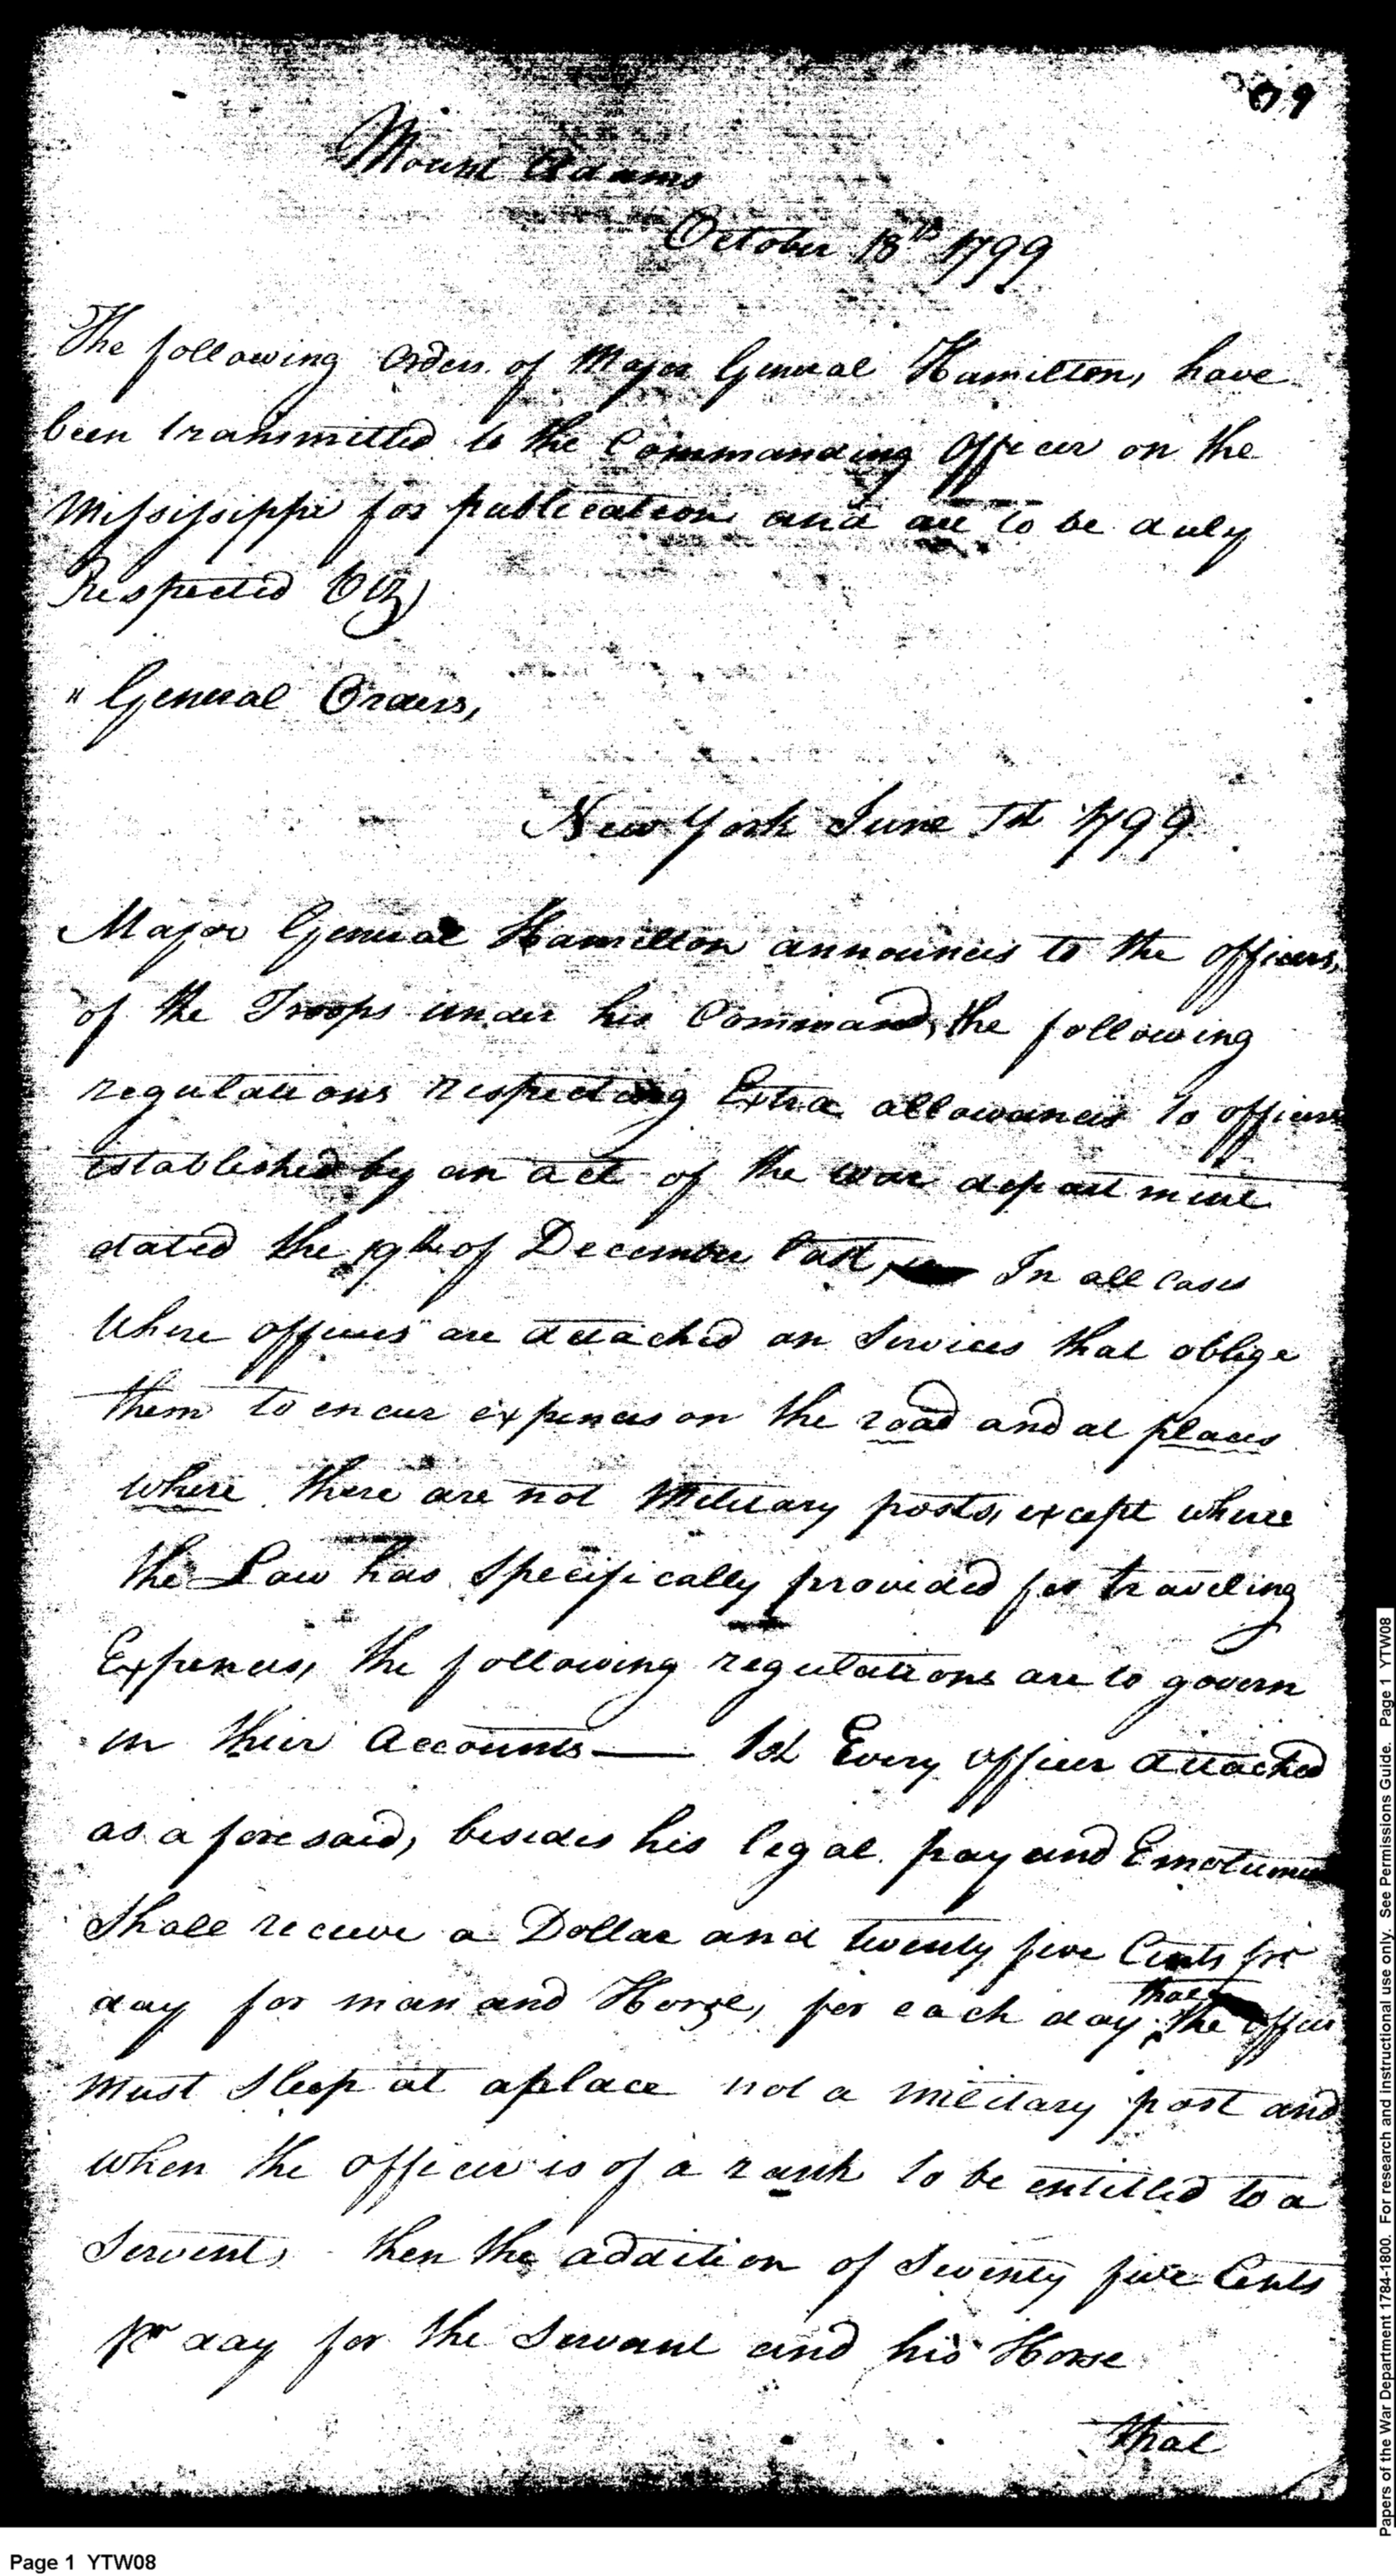 Mount Adams
October 18th 1799
The following Orders of Major General Hamilton, have
been transmitted to the Commanding Officer on the
Mississippi for publication and are to be duly
Respected Viz)
" General Orders,
New York June 1st 1799
Major General Hamilton announces to the officers,
of the Troops under his Command, the following
regulations respecting Extra allowances to officers
established by an act of the war department
dated the 19th of December last, In all cases
Where officers are detached on Services that oblige
them to encur expences on the road and at places
where there are not Military posts, except where
the Law has Specifically provided for traveling
Expences, the following regulations are to govern
in their Accounts — 1st Every officer detached
as aforesaid, besides his legal pay and Emoluments
Shall receive a Dollar and twenty five Cents pr
day for man and Horse, for each day that the officer
must sleep at a place not a military post and
when the officer is of a rank to be entitled to a
Servent, then the addition of Seventy five Cents
pr day for the Servant and his Horse
that
Page 1 YTW08
Papers of the War Department 1784-1800. For research and instructional use only. See Permissions Guide. Page 1 YTW08